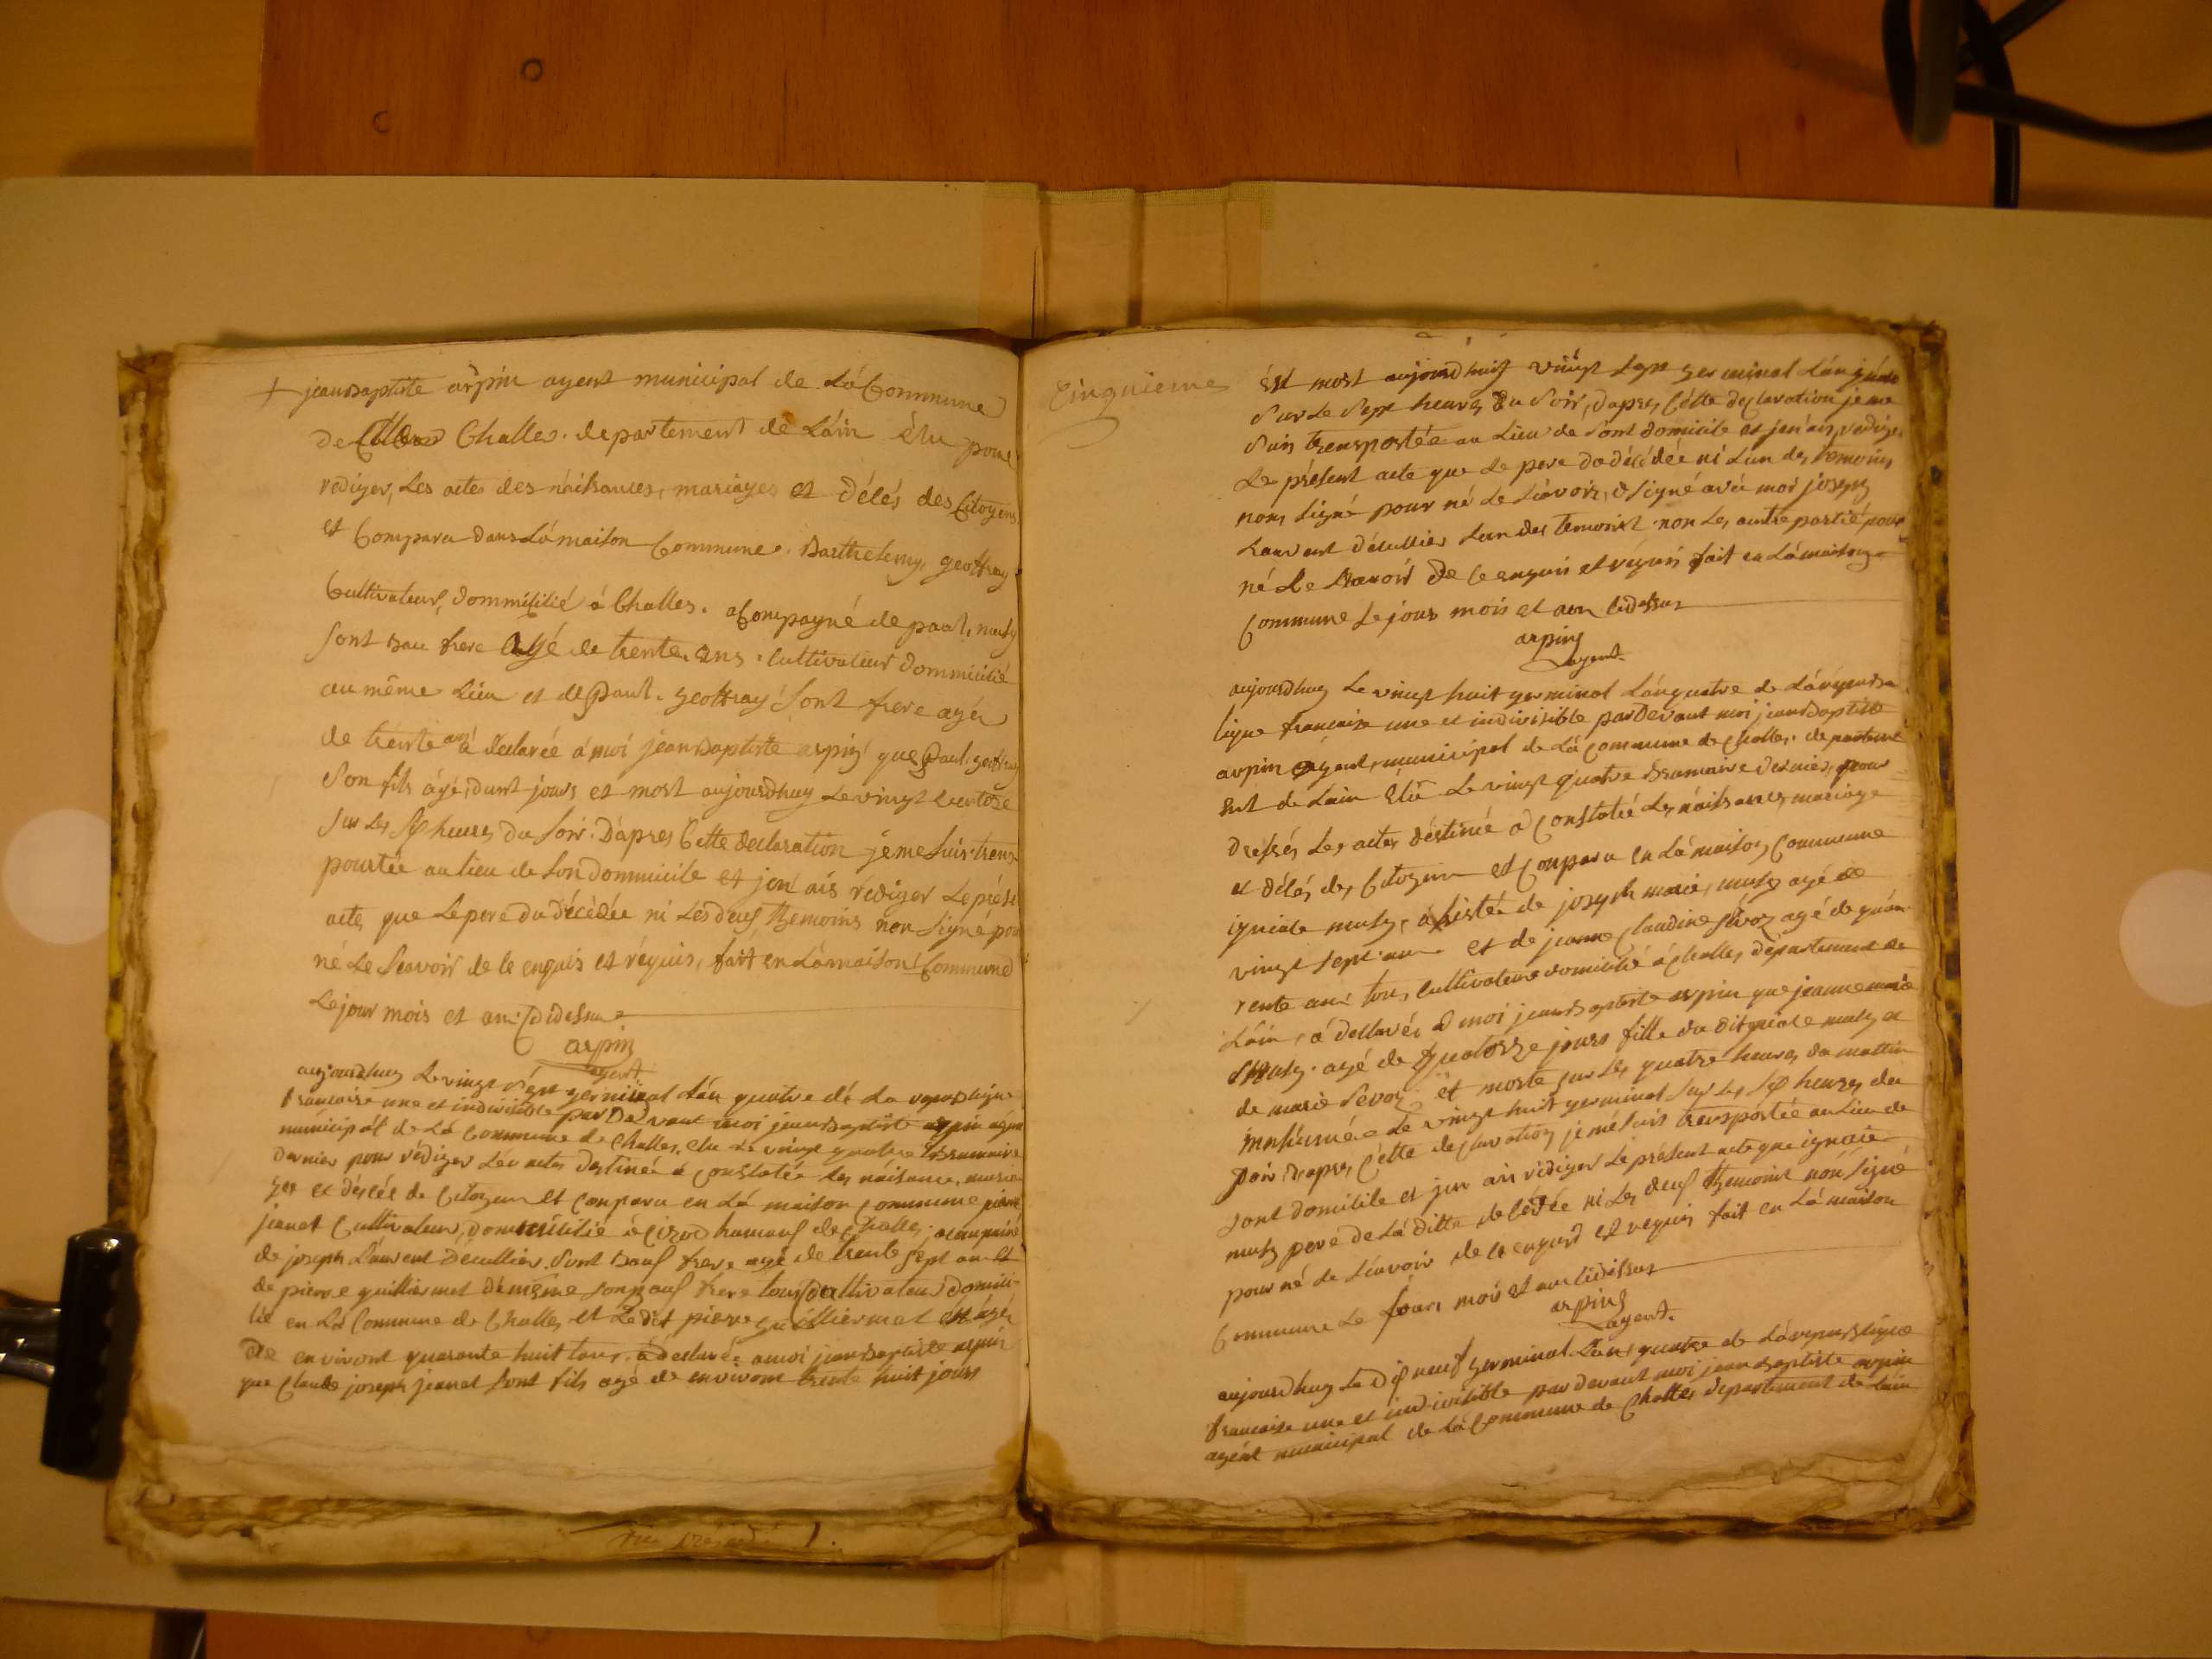 jeanbaptiste arpin agent municipal de Lá Commune
de Challes. departement de Láin élu pour
rediger, Les actes des náissances, mariages et délés des Citoyens
et Comparu dans Lá maison Commune. Barthelemy, geoffray
Cultivateur, dommisilié á Challes. acompagné de paul, muty
sont bau frere agé de trente. ans. Cultivateur dommicilié
au même Lieu et de paul. geoffray sont frere agér
de trente ans á declarée á moi jeanbaptiste arpin que paul. geoffray
son fils ágé, dunt jours et mort aujourdhuy Le vingt
sur Les heures du soir. D'apres Cette declaration je me suis trens
pourtée au lieu de son dommicile et jen ais rédiger Le présent
acte, que Le pere du décédée ni Les deuf themoins non signé pour
né Le scavoir de le enquis et réquis, fait en Lá maison Commune
Le jour mois et an Cidessus
arpin
agent
aujourdhuy Le vingt sept germinal Lán quatre dé La republique
francaise une et indivisible par Devant moi jeanbaptiste arpin agent
municipál de Lá Commune de Challes, élu Le vingt quatre brumaire
dernier pour rédiger Les actes destinée á constatée Les náisance, maria
ges et déscéé de Citoyen et Conparu en Lá maison Commune pierre
jeanet Cultivateur, dommisilié á Cirod hamauf de Challes, acompainé
de joseph Laurent Décullier sont bauf frere agé de trente sept an et
de pierre guilliermet de même son bauf frere tous Cultivateur domici-
lié en Lá Commune de Challes et Ledit pierre guilliermet et ágér
de envivont quarante huit tous. á declarée a moi jeanbaptiste arpin
que Claude joseph jeanet sont fils agé de envivont trente huit jours
Cinquieme
ést mort aujourdhuy vingt sept germinal Lán quatre
sur Le sept heures Du soir, dapres Cétte declaration je me
suis trensportée au Lieu de sont domicile et jen ais rediger
Le présent acte que Le pere du décédée ni Lun des temoins
nons signé pour né Le scávoir, é signé avéc moi joseph
Laurent décullier Lun des temoint non Les autre partié pour
né Le scavoir de le enquis et réquis fait en Lá maison
Commune Le jour mois et ann Cidessus
arpin
agent.
aujourdhuy Le vingt huit germinal Lán quatre de Lá repub
lique francaise une et indivisible par Devant moi jeanbaptiste
arpin agent, municipal de Lá Commune de Challes. departem
ent de Lain élu Le vingt quatre brumaire dernier, pour
dressés Les actes déstinéé á Constatéé Les náissances mariage
et délés des Citoyenn et Conparu en Lá maison Commune
igniace muty, ássistée de joseph marie, muty agé de
vingt sept ann et de jeanne Claudine sévoz agé de quán
rente ans tous Cultivateure domicilié á Challes, département de
Láin, á declarée á moi jeanbaptiste arpin que jeanne marie
Muty. agé de quatorze jours fille du dit ignace muty et
de marie sevoz et morte sur Les quatre heures du mattin
inhumée Le vingt huit germinal sur Les heures du
soir, dapres Cétte declaration je mé suis trensportée au Lieu de
sont domicile et jen ais rédiger Le présent acte que ignaie
muty pere de Lá ditte de Cédée ni Les deuf themoint non signé
pour né Le scávoir de Le enquis et requis fait en Lá maison
Commune Le jour, mois et ann Cidissus
arpin
agent.
aujourdhuy Le Dis neuf germinal Lán quatre de Lá republique
francaise une et indivisible par devant moi jeanbaptiste arpin
agént municipal de Lá Commune de Challes departement de Lain